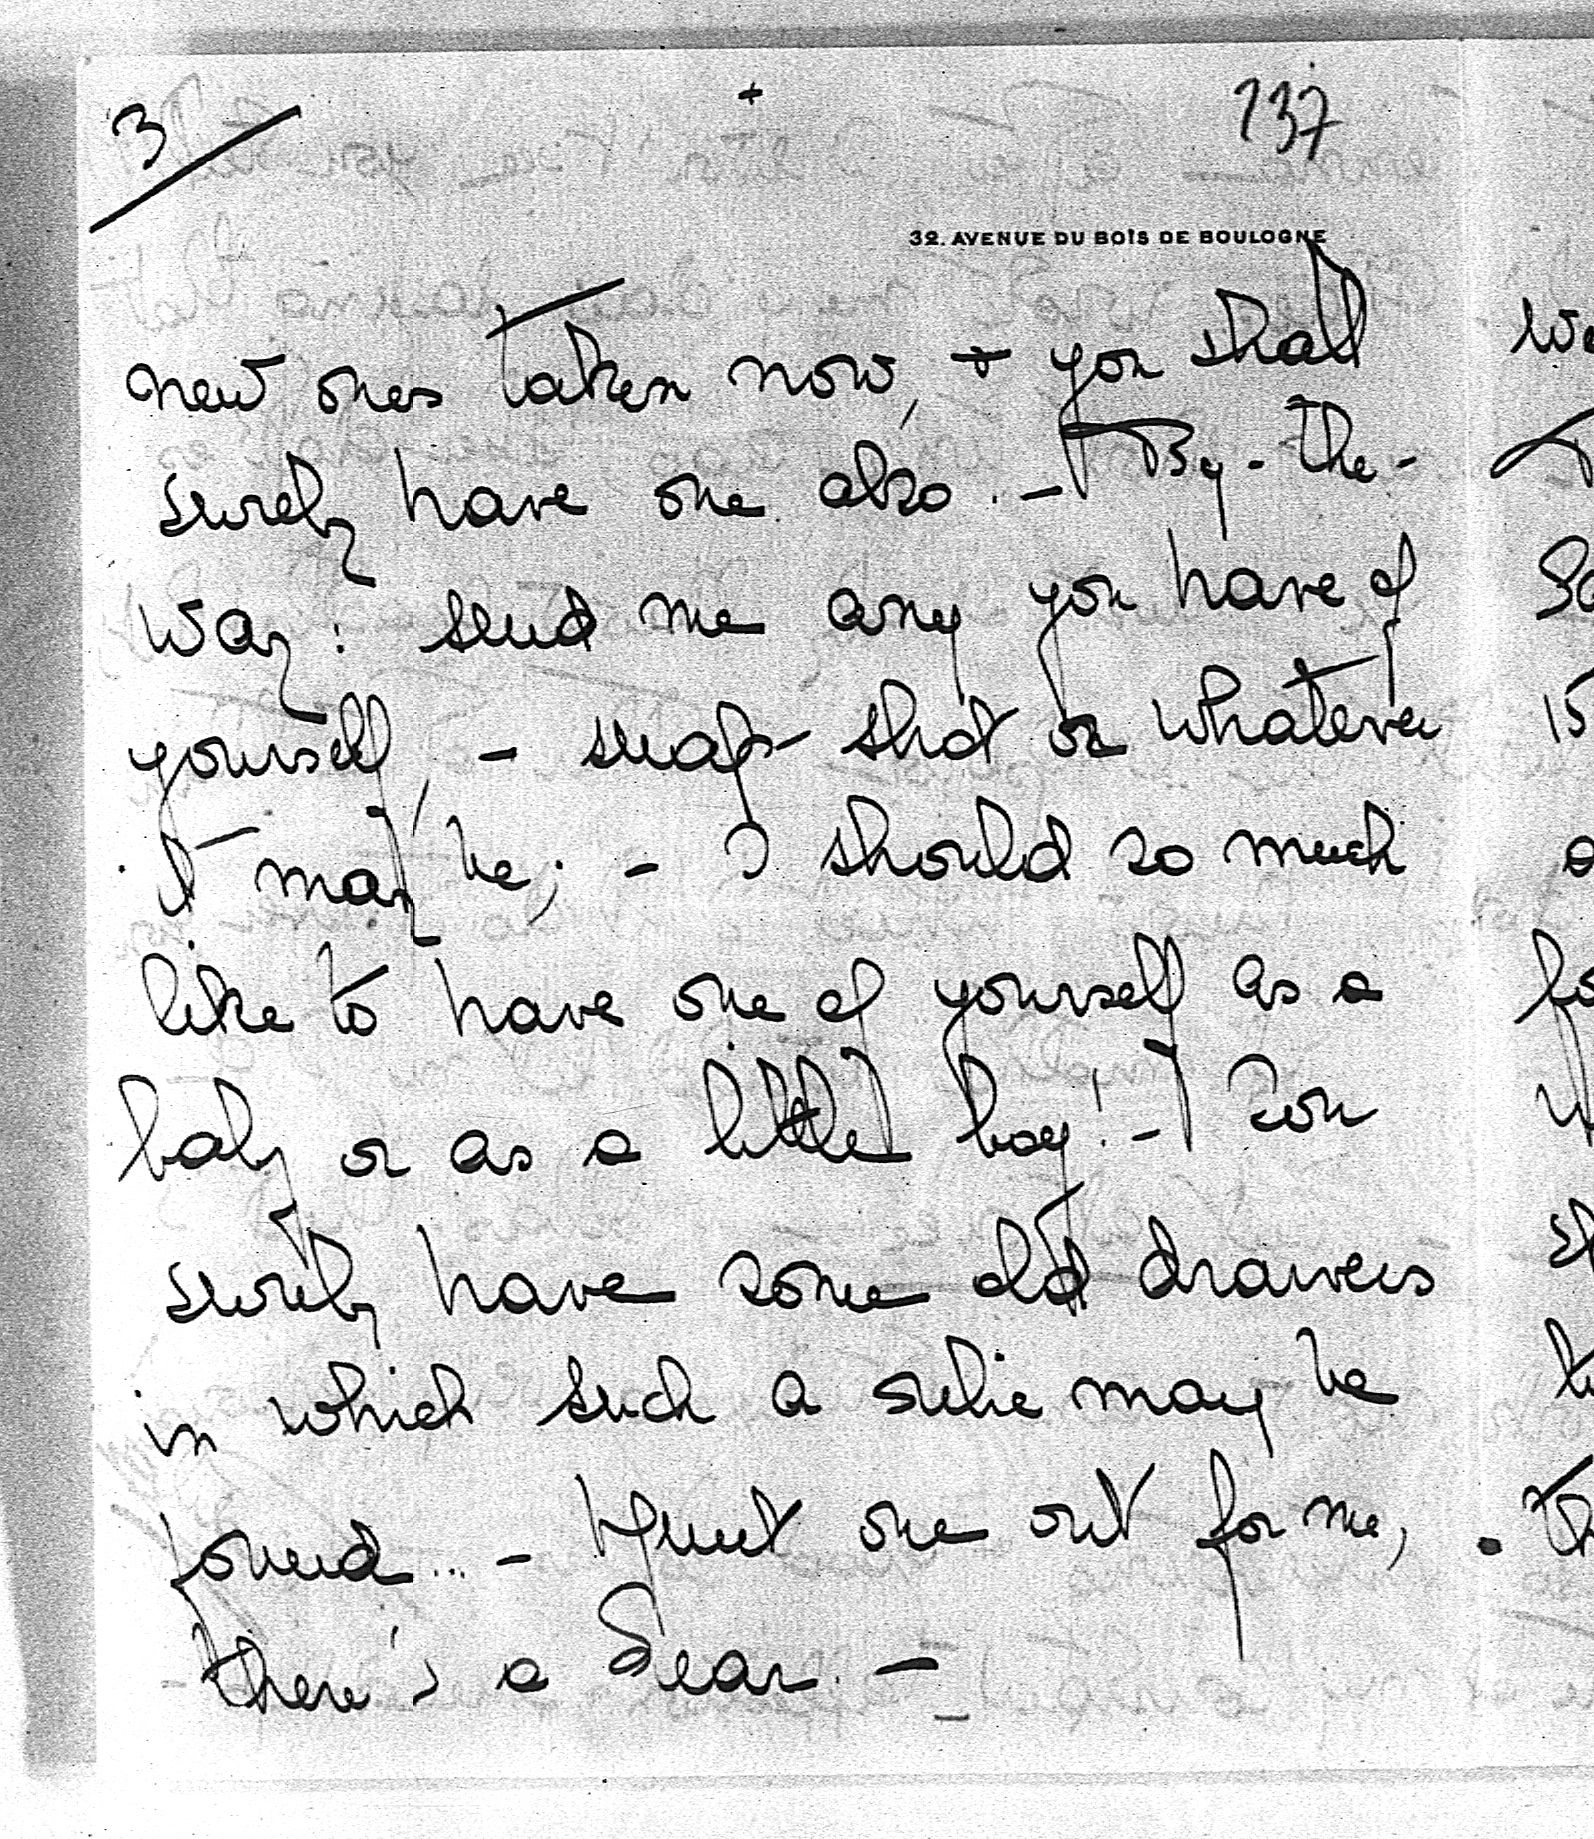 3
+
737
32. AVENUE DU BOIS DE BOULOGNE
new ones taken now, + you shall
surely have one also. - By-the-
way: send me any you have of
yourself, - snap-shot or whatever
it may be; - I should so much
like to have one of yourself as a
baby or as a little boy! - You
surely have some old drawers
in which such a relic may be
found... - Hunt one out for me,
there's a Dear. -